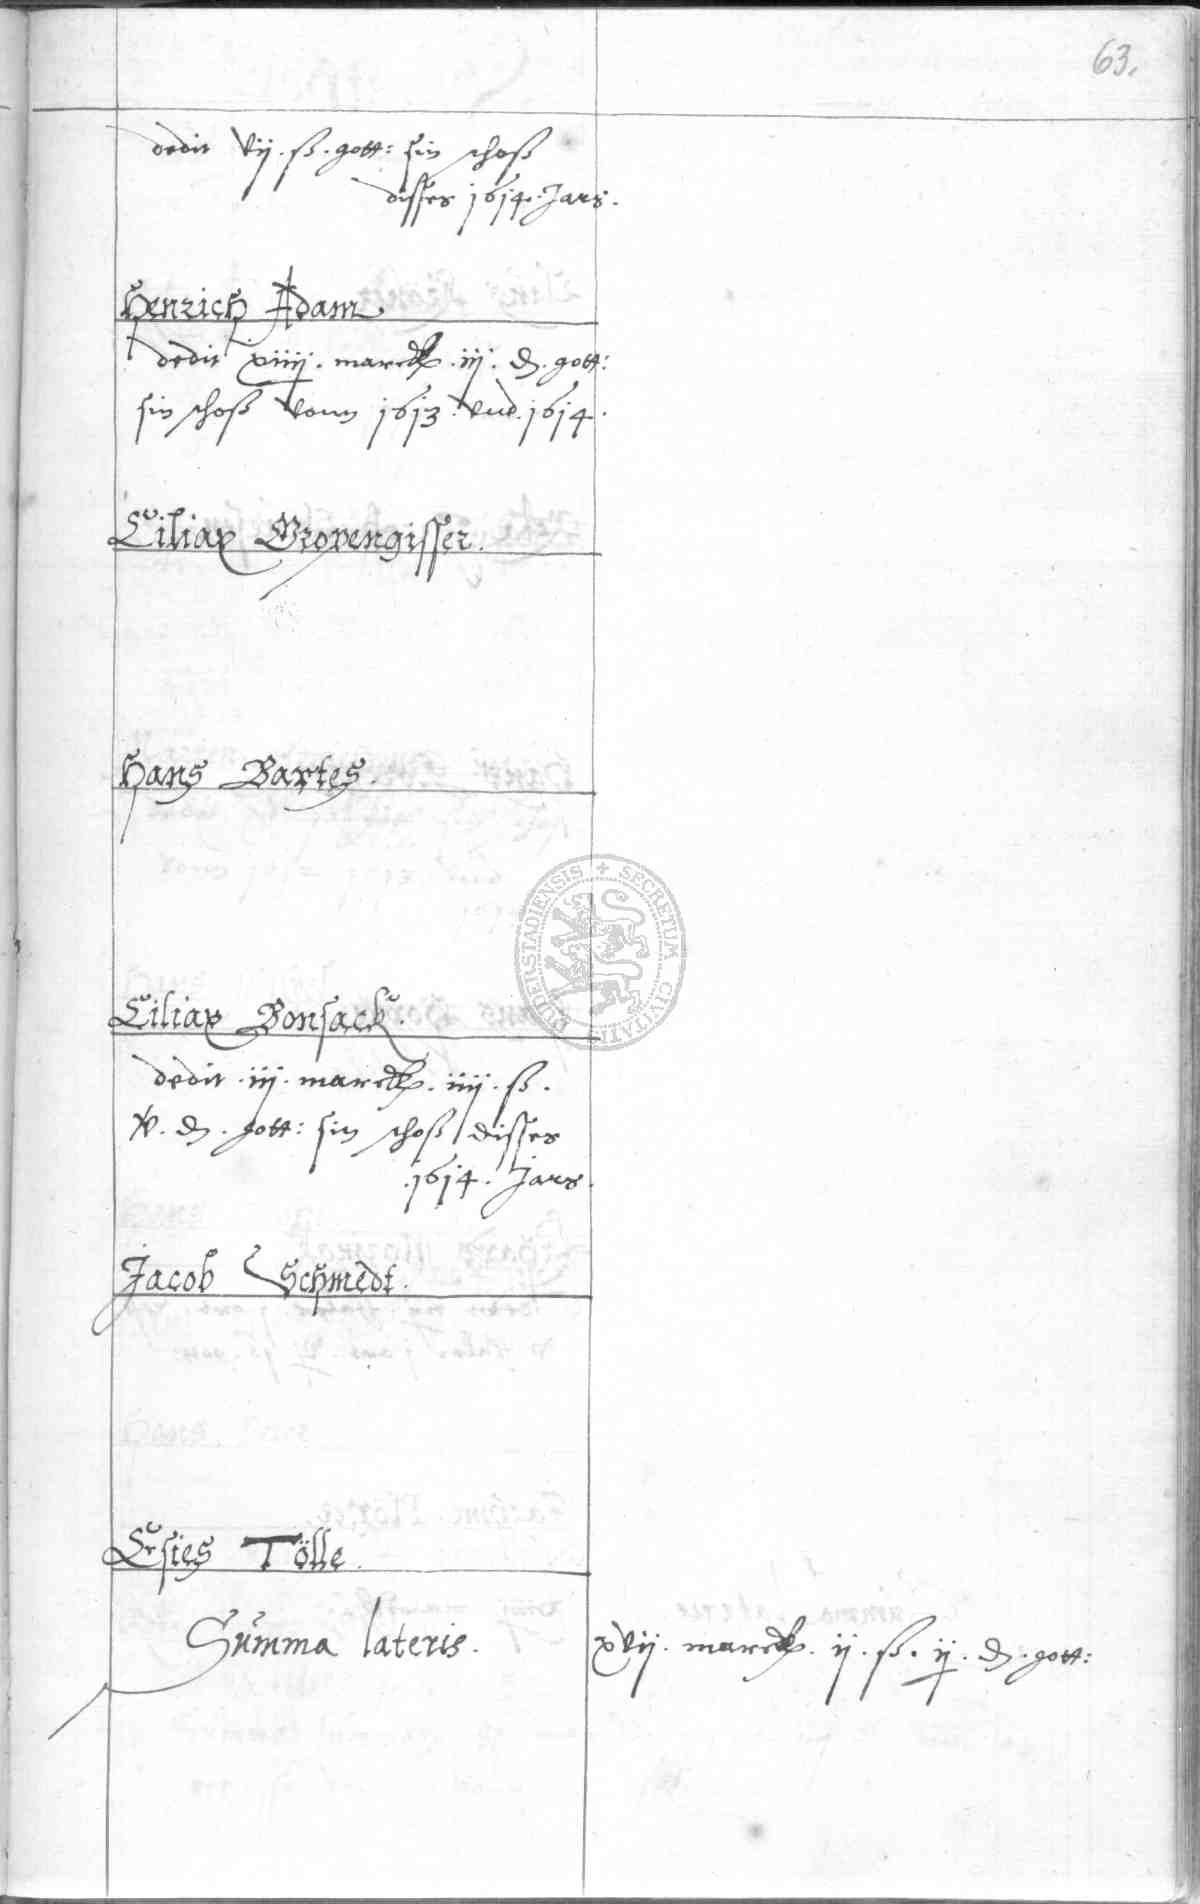 63.
dedit vij. ß. gott: sin schoß
disses 1614. Jars.
Henrich Adam
dedit xiiij. marck. iij. d. gott:
sin schoß vonn 1613. vnd. 1614.
Ciliax Gropengisser.
Hans Bartes.
DUDERSTADIENSIS + SECRETUM CIVITATIS
Ciliax Bonsack.
dedit. iij. marck. iiij. ß.
v. d. gott: sin schoß disses
.1614. Jars.
Jacob Schmedt.
Ersies Tölle.
Summa lateris. xvij. marck. ij. ß. ij. d. gott: